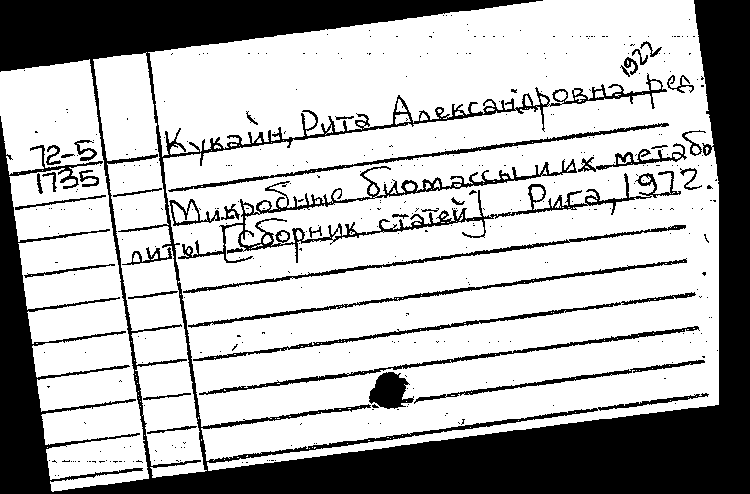 1922
72-5
1735
Кукайн, Рита Александровна, ред.
Микробные биомассы и их метабо
литы [сборник статей] Рига, 1972.